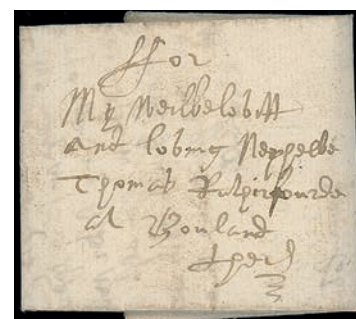 ffor
My Weilbelovitt
and loving Nephebe
Thomas Ruthirfourde
at Bouland